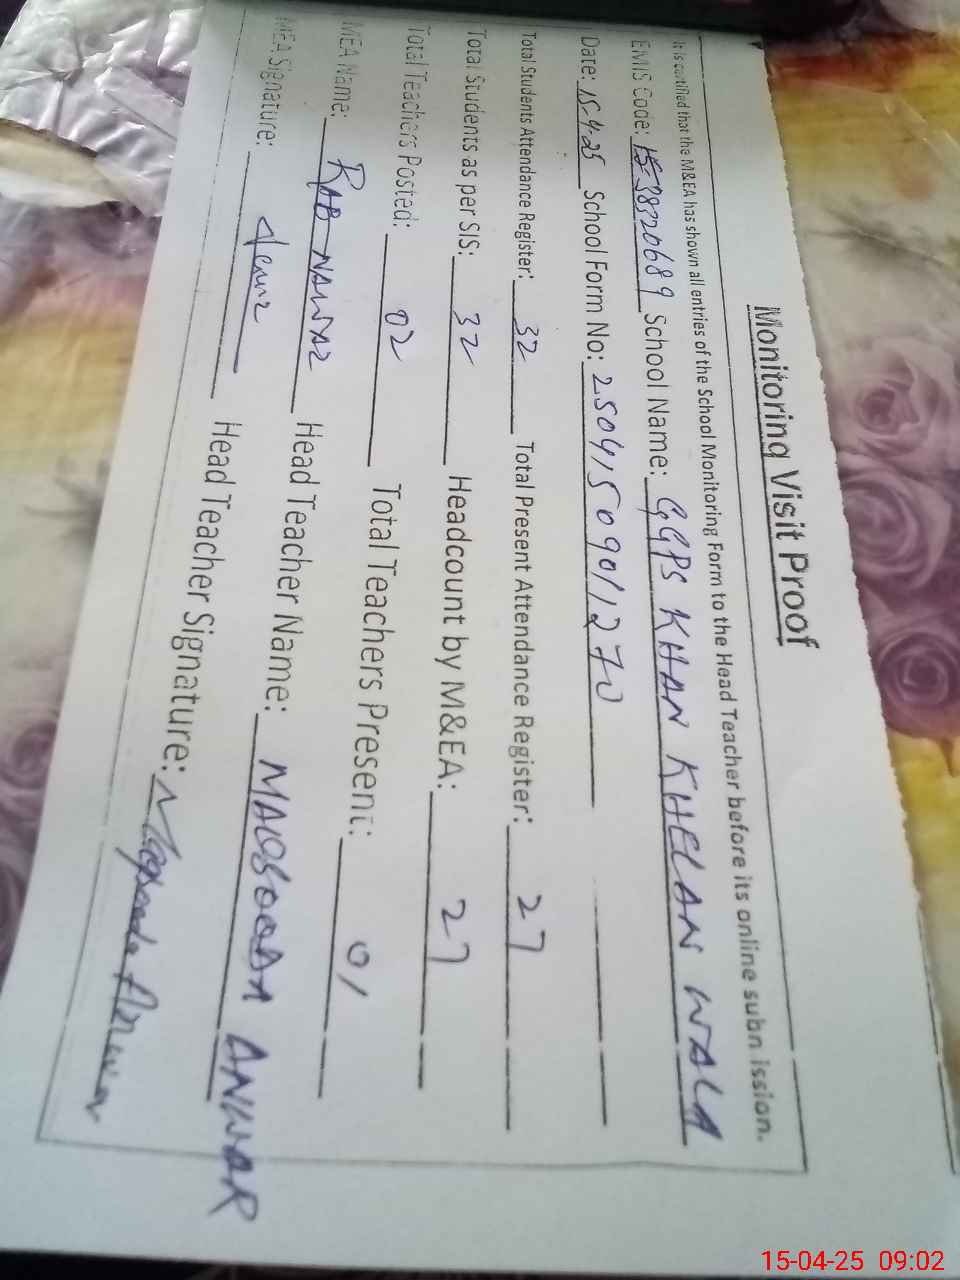 Monitoring Visit Proof
It is certified that the M&EA has shown all entries of the School Monitoring Form to the Head Teacher before its online subn ission.
EMIS Code: 38320689 School Name: GGPS KHAN KHELAN WALA
Date: 15-4-25 School Form No: 2504150901270
Total Students Attendance Register: 32 Total Present Attendance Register: 27
Total Students as per SIS: 32 Headcount by M&EA: 27
Total Teachers Posted: 02 Total Teachers Present: 01
MEA Name: RAB NAWAZ Head Teacher Name: MAQSOODA ANWAR
MEA Signature: Head Teacher Signature: Maqsooda Anwar
15-04-25 09:02